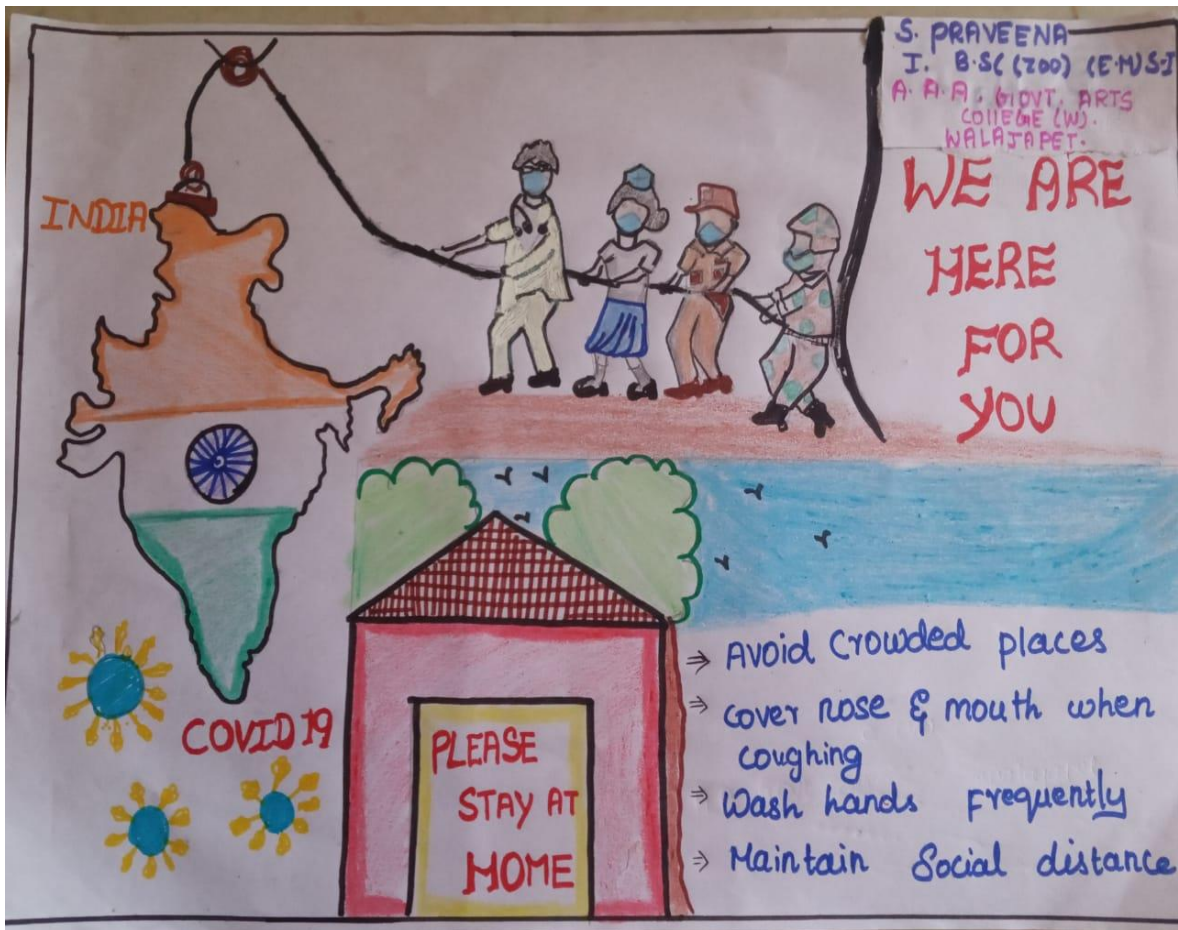 S. PRAVEENA
I. B.SC (ZOO) (E.M) S-I
A.A.A. GOVT. ARTS
COllEGE (W).
WALAJAPET.
WE ARE
HERE
FOR
YOU
INDIA
COVID 19
PLEASE
STAY AT
HOME
⇒ AVOID Crowded places
⇒ cover nose & mouth when
coughing
⇒ Wash hands frequently
⇒ Maintain Social distance